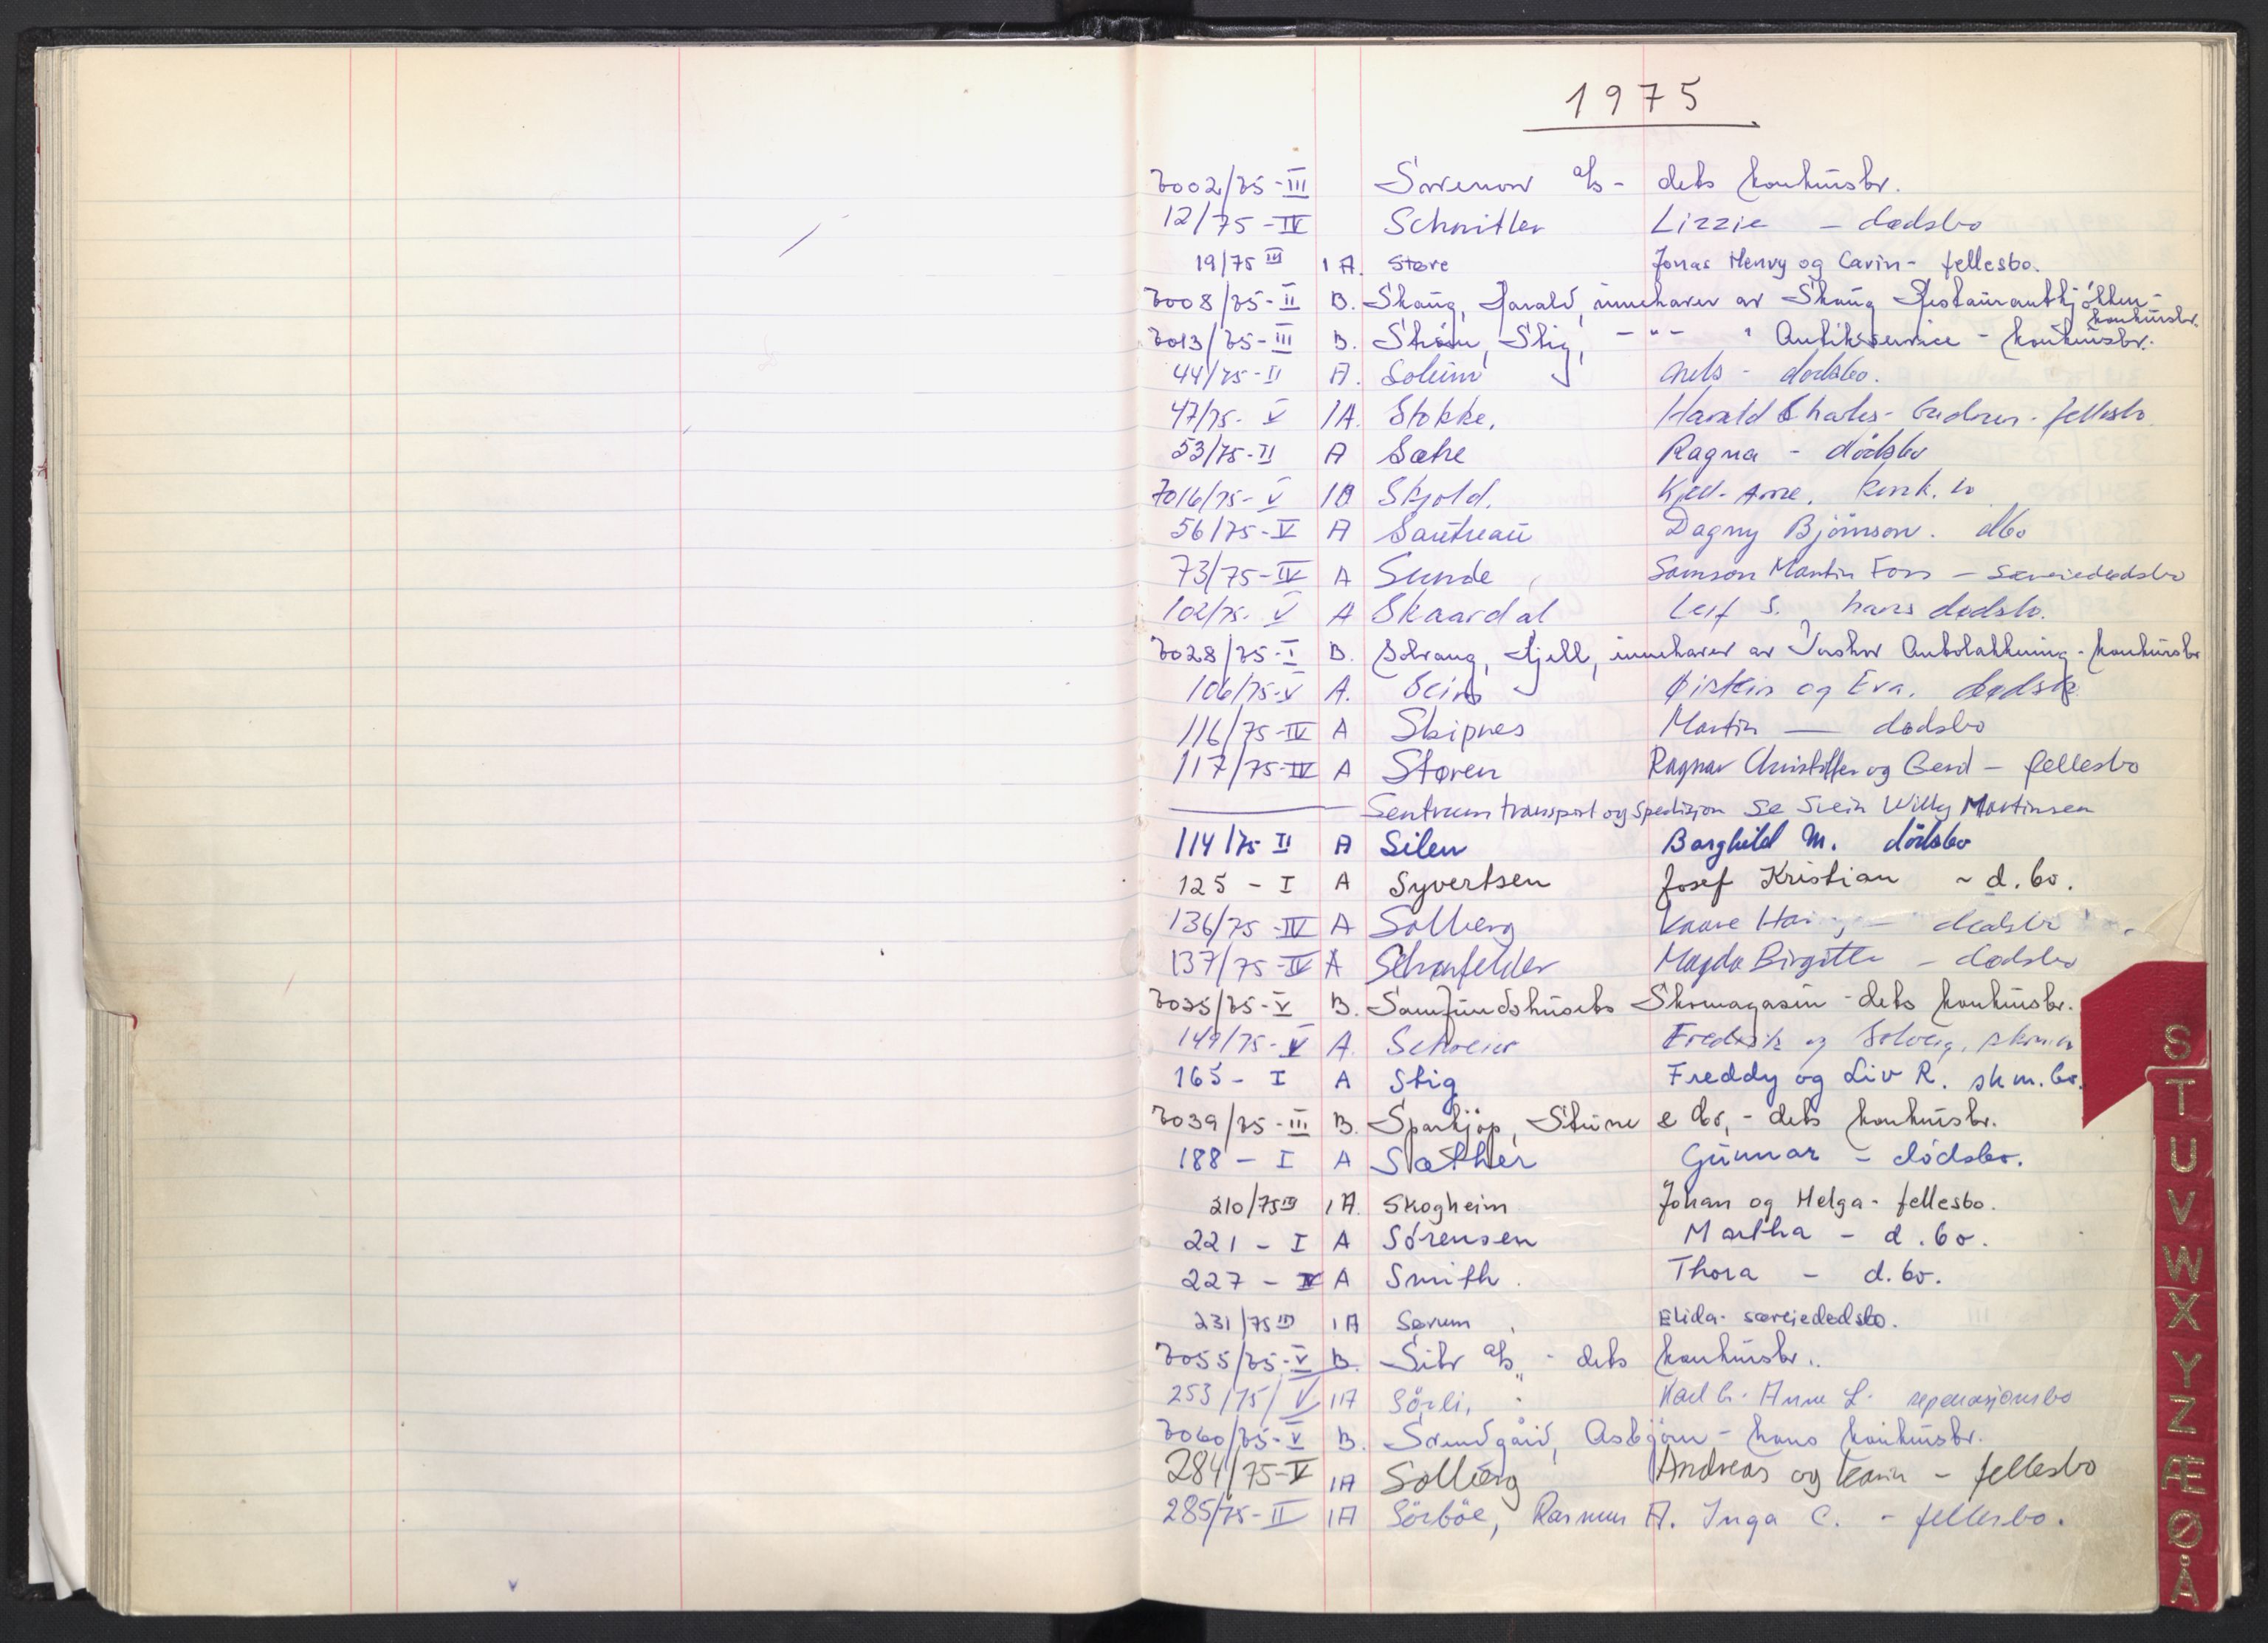 1975
7002/75-III Sovenor a/s - dets konkursbo.
12/75-IV Schnitler Lizzie - dødsbo
19/75 III 1A. Støre Jonas Henry og Carin - fellesbo.
7008/75-II B. Skaug, Harald, innehaver av Skaug Restaurantkjøkken -
konkursbo.
7013/75-III B. Strøm, Stig, -"- " Antikservice - konkursbo.
44/75-II A. Solheim dødsbo.
47/75-V 1A. Stokke, Harald Charles - Gudrun - fellesbo
53/75-II A Sætre Ragna - dödsbo
7016/75-V 1B Skjold, Kjell-Arne. konk. bo
56/75-V A Sautreau Dagny Björnson. dbo
73/75-IV A Sunde, Samson Martin Foss - særeiedødsbo
102/75-V A Skaardal Leif S. hans dødsbo.
7028/75-I B. Solvang, Kjell, innehaver av Autolakkering - konkursbo
106/75-V A. Øistein og Eva. dødsbo
116/75-IV A Skipnes Martin — dødsbo
117/75-IV A Støren Ragnar Christoffer og Gerd - fellesbo
Sentrum transport og spedisjon se Svein Willy Martinsen
114/75 II A Silen Borghild M. dödsbo
125 - I A Syvertsen Josef Kristian ~ d. bo.
136/75-IV A Solberg Kaare dødsbo
137/75-IV A Schønfelder Magda Birgitte - dødsbo
7035/75-V B. Samfundshusets Skomagasin - dets konkursbo.
149/75-V A. Schreier Fredrik og Solveig, skm.bo
165 - I A Stig Freddy og Liv R. skm. bo.
7039/75-III B. Sparkjøp, Stene & Co, - dets konkursbo.
188 - I A Sæther Gunnar - dödsbo.
210/75 III 1A. Skogheim Johan og Helga - fellesbo.
221 - I A Sörensen Martha - d. bo.
227 - IV A Smith. Thora - d. bo.
231/75 III 1A Sørum Elida - særeiedødsbo.
7055/75-V B. Sibo a/s - dets konkursbo.
253/75/V 1A Sörli, Karl G. Anne L. separasjonsbo
7060/75-V B. Sandgård, Asbjørn - hans konkursbo.
284/75-V 1A Solberg Andreas og Karin - fellesbo
285/75-II 1A Sörböe, Rasmus A. Inga C. - fellesbo.
S
T
U
V
W
X
Y
Z
Æ
Ø
Å